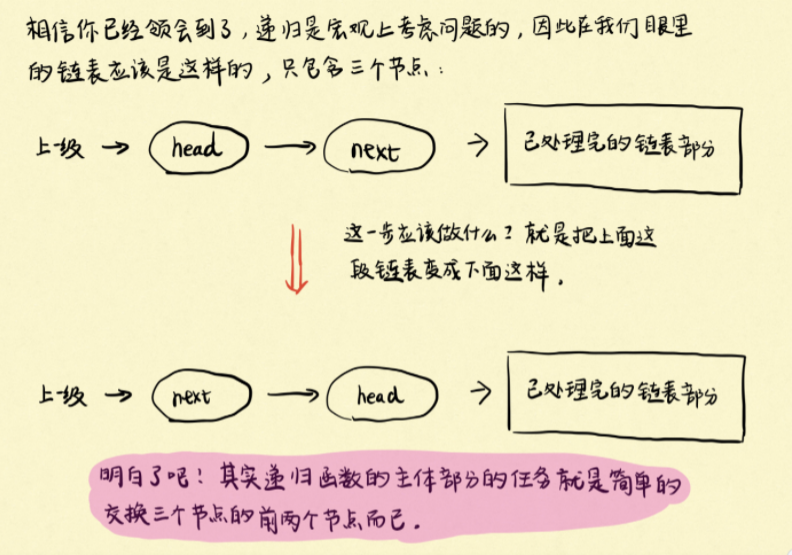 相信你已经领会到了,递归是宏观上考虑问题的,因此在我们眼里
的链表应该是这样的,只包含三个节点:
上一级 → head → next → 已处理完的链表部分
这一步应该做什么?就是把上面这
段链表变成下面这样.
上一级 → next → head → 已处理完的链表部分
明白了吧!其实递归函数的主体部分的任务就是简单的
交换三个节点的前两个节点而已.